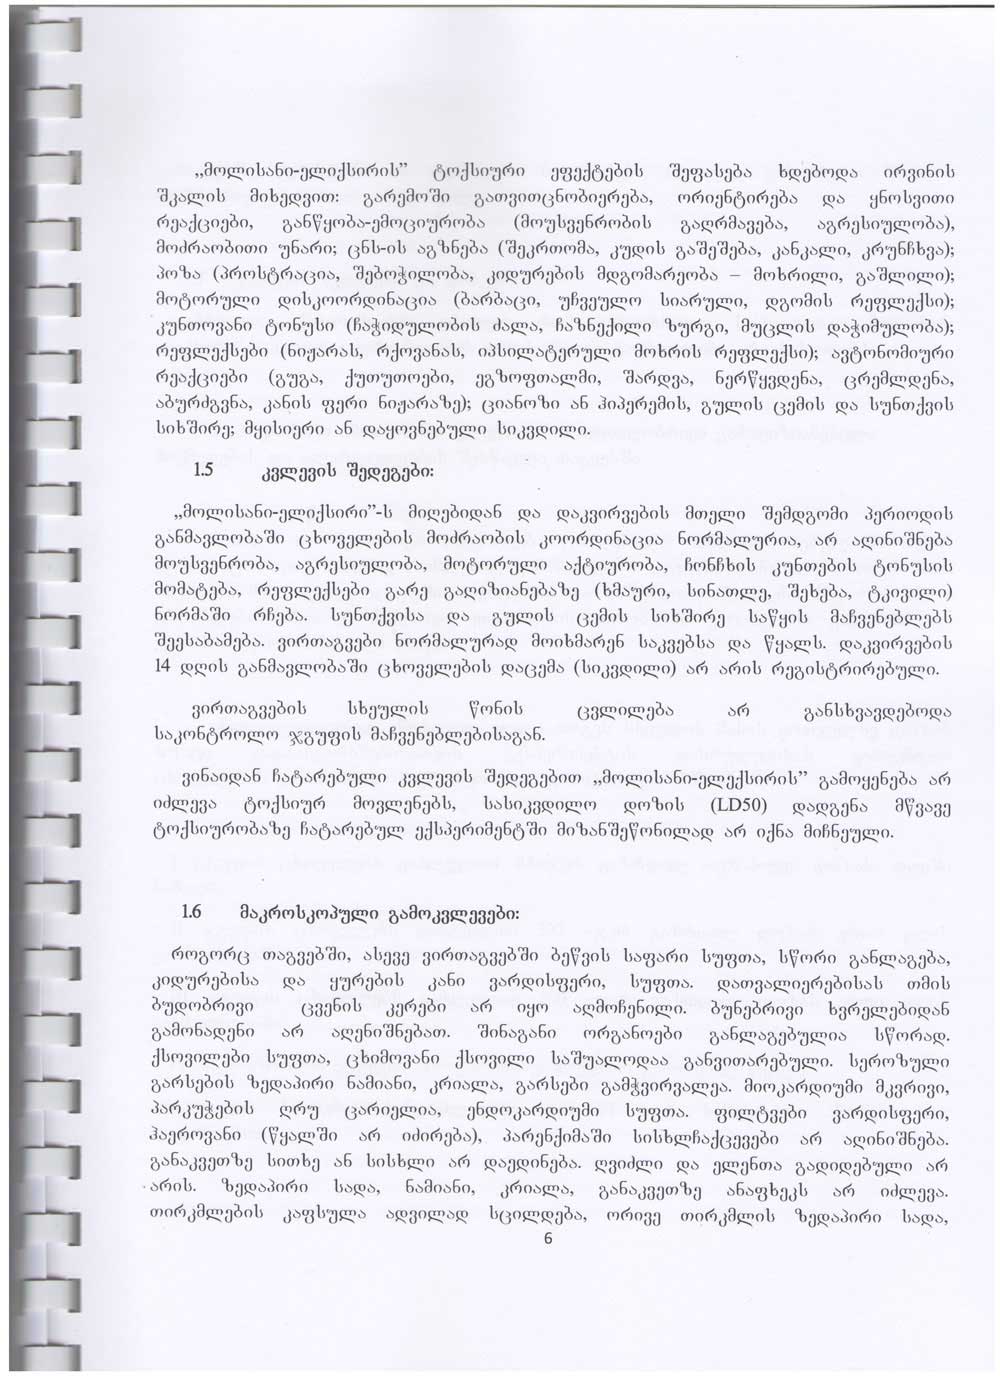 „მოლისანი-ელიქსირის” ტოქსიური ეფექტების შეფასება ხდებოდა ირვინის
შკალის მიხედვით: გარემოში გათვითცნობიერება, ორიენტირება და ყნოსვითი
რეაქციები, განწყობა-ემოციურობა (მოუსვენრობის გაღრმავება, აგრესიულობა),
მოძრაობითი უნარი; ცნს-ის აგზნება (შეკრთომა, კუდის გაშეშება, კანკალი, კრუნჩხვა);
პოზა (პროსტრაცია, შებოჭილობა, კიდურების მდგომარეობა – მოხრილი, გაშლილი);
მოტორული დისკოორდინაცია (ბარბაცი, უჩვეულო სიარული, დგომის რეფლექსი);
კუნთოვანი ტონუსი (ჩაჭიდულობის ძალა, ჩაზნექილი ზურგი, მუცლის დაჭიმულობა);
რეფლექსები (ნიჟარას, რქოვანას, იპსილატერული მოხრის რეფლექსი); ავტონომიური
რეაქციები (გუგა, ქუთუთოები, ეგზოფთალმი, შარდვა, ნერწყვდენა, ცრემლდენა,
აბურძგვნა, კანის ფერი ნიჟარაზე); ციანოზი ან ჰიპერემის, გულის ცემის და სუნთქვის
სიხშირე; მყისიერი ან დაყოვნებული სიკვდილი.
1.5 კვლევის შედეგები:
„მოლისანი-ელიქსირი”-ს მიღებიდან და დაკვირვების მთელი შემდგომი პერიოდის
განმავლობაში ცხოველების მოძრაობის კოორდინაცია ნორმალურია, არ აღინიშნება
მოუსვენრობა, აგრესიულობა, მოტორული აქტიურობა, ჩონჩხის კუნთების ტონუსის
მომატება, რეფლექსები გარე გაღიზიანებაზე (ხმაური, სინათლე, შეხება, ტკივილი)
ნორმაში რჩება. სუნთქვისა და გულის ცემის სიხშირე საწყის მაჩვენებლებს
შეესაბამება. ვირთაგვები ნორმალურად მოიხმარენ საკვებსა და წყალს. დაკვირვების
14 დღის განმავლობაში ცხოველების დაცემა (სიკვდილი) არ არის რეგისტრირებული.
ვირთაგვების სხეულის წონის ცვლილება არ განსხვავდებოდა
საკონტროლო ჯგუფის მაჩვენებლებისაგან.
ვინაიდან ჩატარებული კვლევის შედეგებით „მოლისანი-ელექსირის” გამოყენება არ
იძლევა ტოქსიურ მოვლენებს, სასიკვდილო დოზის (LD50) დადგენა მწვავე
ტოქსიურობაზე ჩატარებულ ექსპერიმენტში მიზანშეწონილად არ იქნა მიჩნეული.
1.6 მაკროსკოპული გამოკვლევები:
როგორც თაგვებში, ასევე ვირთაგვებში ბეწვის საფარი სუფთა, სწორი განლაგება,
კიდურებისა და ყურების კანი ვარდისფერი, სუფთა. დათვალიერებისას თმის
ბუდობრივი ცვენის კერები არ იყო აღმოჩენილი. ბუნებრივი ხვრელებიდან
გამონადენი არ აღენიშნებათ. შინაგანი ორგანოები განლაგებულია სწორად.
ქსოვილები სუფთა, ცხიმოვანი ქსოვილი საშუალოდაა განვითარებული. სეროზული
გარსების ზედაპირი ნამიანი, კრიალა, გარსები გამჭვირვალეა. მიოკარდიუმი მკვრივი,
პარკუჭების ღრუ ცარიელია, ენდოკარდიუმი სუფთა. ფილტვები ვარდისფერი,
ჰაეროვანი (წყალში არ იძირება), პარენქიმაში სისხლჩაქცევები არ აღინიშნება.
განაკვეთზე სითხე ან სისხლი არ დაედინება. ღვიძლი და ელენთა გადიდებული არ
არის. ზედაპირი სადა, ნამიანი, კრიალა, განაკვეთზე ანაფხეკს არ იძლევა.
თირკმლების კაფსულა ადვილად სცილდება, ორივე თირკმლის ზედაპირი სადა,
6